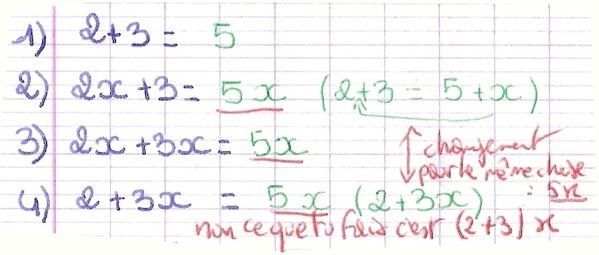 1) 2+3 = 5
2) 2x+3 = 5x (2+3 = 5+x)
3) 2x+3x = 5x
changement
pour le même chose
: 5x
4) 2+3x = 5x (2+3x)
non ce que tu fais c'est (2+3) x